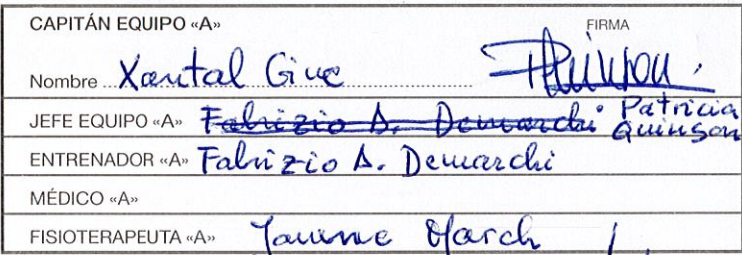 CAPITÁN EQUIPO «A» FIRMA
Nombre Xantal Giné
JEFE EQUIPO «A» Fabrizio A. Demarchi Patricia Quinson
ENTRENADOR «A» Fabrizio A. Demarchi
MÉDICO «A»
FISIOTERAPEUTA «A» March